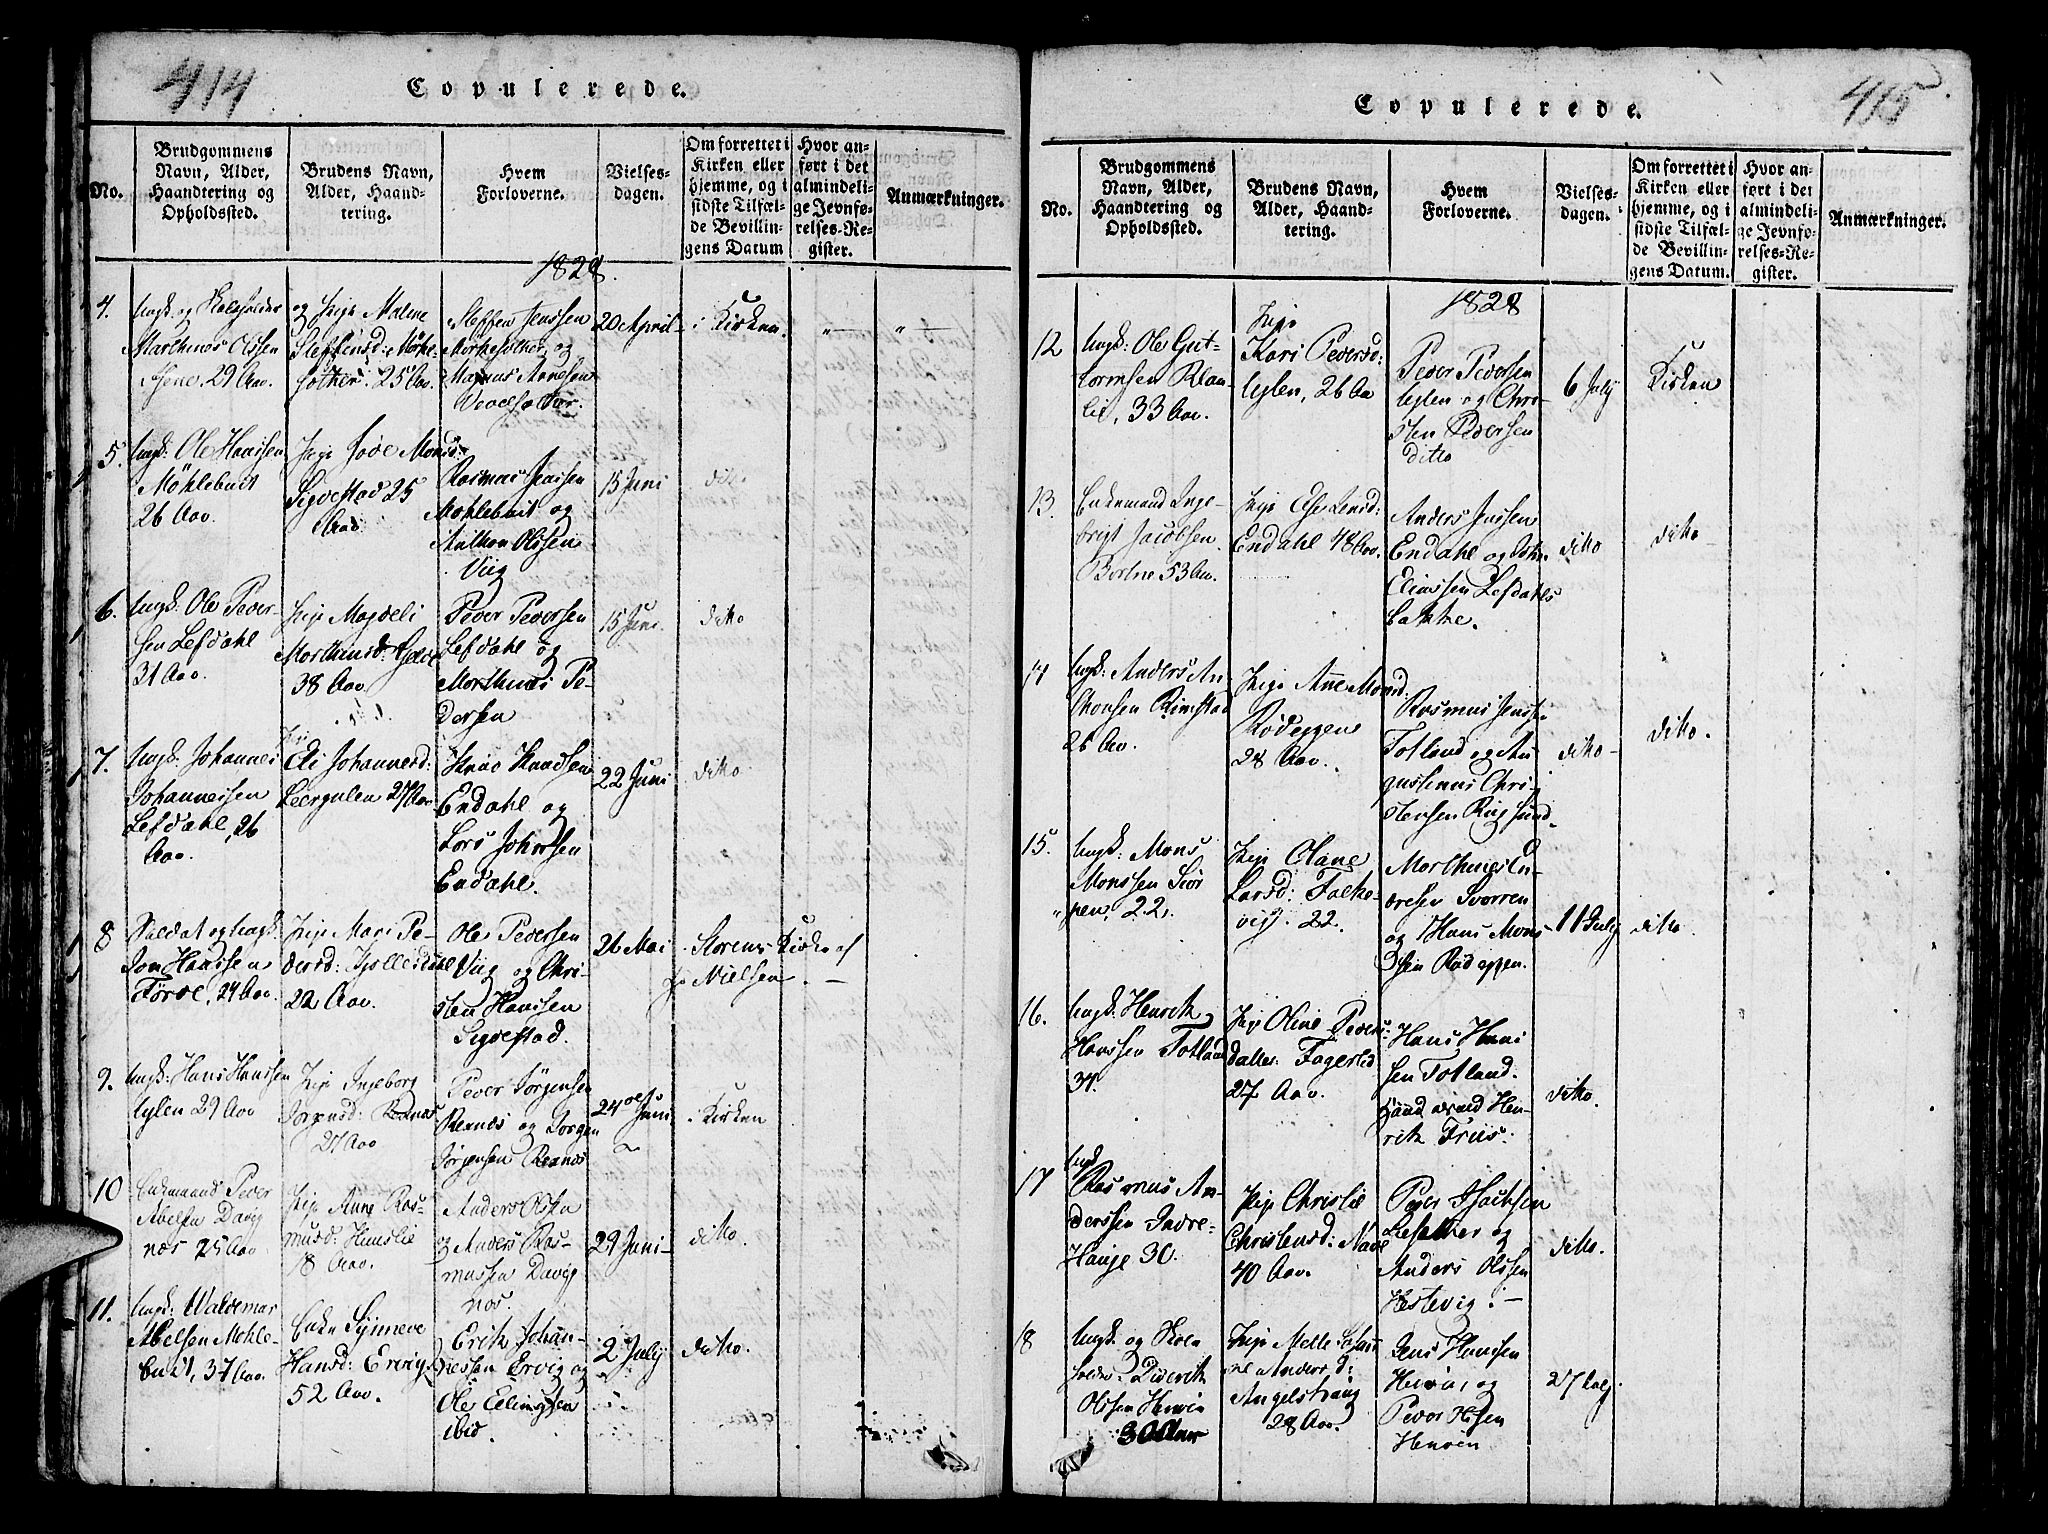 414
Copulerede.
No.
Brudgommens
Navn, Alder,
Haandtering og
Opholdssted.
Brudens Navn,
Alder, Haand-
tering.
Hvem
Forloverne.
Vielses-
dagen.
Om forrettet i
Kirken eller
hjemme, og i
sidste Tilfæl-
de Bevillin-
gens Datum
Hvor an-
ført i det
almindeli-
ge Jevnfø-
relses-Re-
gister.
Anmærkninger.
1828.
4.
Ungk: og
Marthinos Olssen
29 Aar.
og Pige Malene
Steffensd:
25 Aar.
Steffen Jenssen
og
Magnus Annesen
20 April
i Kirken.
5.
Ungk: Ole Hanssen
Möklebust
26 Aar.
Pige Monsd:
Sigdestad 25
Aar
Rasmus Jenssen
Möklebust og
Anthon Olssen
Viig
15 Juni
dito
6.
Ungk: Ole Peder-
sen Lefdahl
31 Aar.
Pige Magdeli
Morthensd:
38 Aar.
Peder Pedersen
Lefdahl og
Morthines Pe-
dersen
15 Juni.
dito
7.
Ungk: Johannes
Johannessen
Lefdahl, 26
Aar.
Pige
Eli Johannesd:
Leergulen 27 Aar
Knud Knudsen
Endahl og
Lars Johnsen
Endahl.
22 Juni
dito
8
Soldat og Ungk:
Jon Hanssen
24 Aar.
Pige Mari Pe-
dersd:
22 Aar.
Ole Pedersen
Viig og Chri-
sten Hanssen
Sigdestad.
26 Mai
Kirke af
Hr Nielsen.
9.
Ungk: Hans Hanssen
Uglen 29 Aar
Pige Ingeborg
Jörgensd: Rexnæs
27 Aar
Peder Jörgensen
Rexnæs og Jörgen
Jörgensen Rexnæs
24de Juni
Kirken
10
Enkemand Peder
Abelsen Davig
næs 25 Aar
Pige Anne Ras-
musd: Hunslie
18 Aar.
Anders
og Anders Ras-
mussen Davig
næs.
29 Juni
dito.
11.
Ungk: Waldemar
Abelsen Möckle-
bust, 37 Aar.
Enke Synneve
Hansd: Ervig
52 Aar.
Erik Johan-
nessen Ervig og
Ole Ellingsen
ibid.
2 July
dito.
415
Copulerede.
No.
Brudgommens
Navn, Alder,
Haandtering og
Opholdssted.
Brudens Navn,
Alder, Haand-
tering.
Hvem
Forloverne.
Vielses-
dagen.
Om forrettet i
Kirken eller
hjemme, og i
sidste Tilfæl-
de Bevillin-
gens Datum.
Hvor an-
ført i det
almindeli-
ge Jevnfø-
relses-Re-
gister.
Anmærkninger.
1828
12
Ungk: Ole Gut-
tormsen
33 Aar.
Pige
Kari Pedersd:
Uglen, 26 Aar
Peder Pedersen
Uglen og Chri-
sten Pedersen
ditto
6 July
Kirken
13.
Enkemand Inge-
brigt Jacobsen
Bortne 53 Aar.
Pige Else Jensd:
Endahl 48 Aar.
Anders Jenssen
Endahl og
Eliassen Lefdahls
bakke.
dito
dito
14
Ungk: Anders An-
thonsen Rimstad
26 Aar.
Pige Anne Monsd:
Rödeggen
28 Aar.
Rasmus Jenss:
Totland og Au-
gustinus Chri-
stensen Rugsund
dito
dito.
15.
Ungk: Mons
Monssen Skör
pen, 22.
Pige Oline
Larsd: Falke-
vig. 22.
Morthines En-
dresen Svorren
og Hans Mons
sen Rödeggen.
11 July
dito.
16.
Ungk: Henrik
Hanssen Totland
34.
Pige Oline Peders-
datter Fagerlid
27 Aar.
Hans Hans
sen Totland.
Haandværksmd Hen-
rik Friis.
dito.
17
Ungk
Rasmus An-
derssen Indre-
Hauge 30.
Pige Christie
Christensd: Nave
40 Aar.
Peder Isachsen
Lesæther og
Anders Olssen
Hestevig.
dito.
18
Ungk: og
Diderik
Olssen Henöen
30 Aar
Pige Mette Susan
ne Andersd:
Angelskaug
28 Aar.
Jens Hanssen
Henöen, og
Peder
Henöen
27 July.